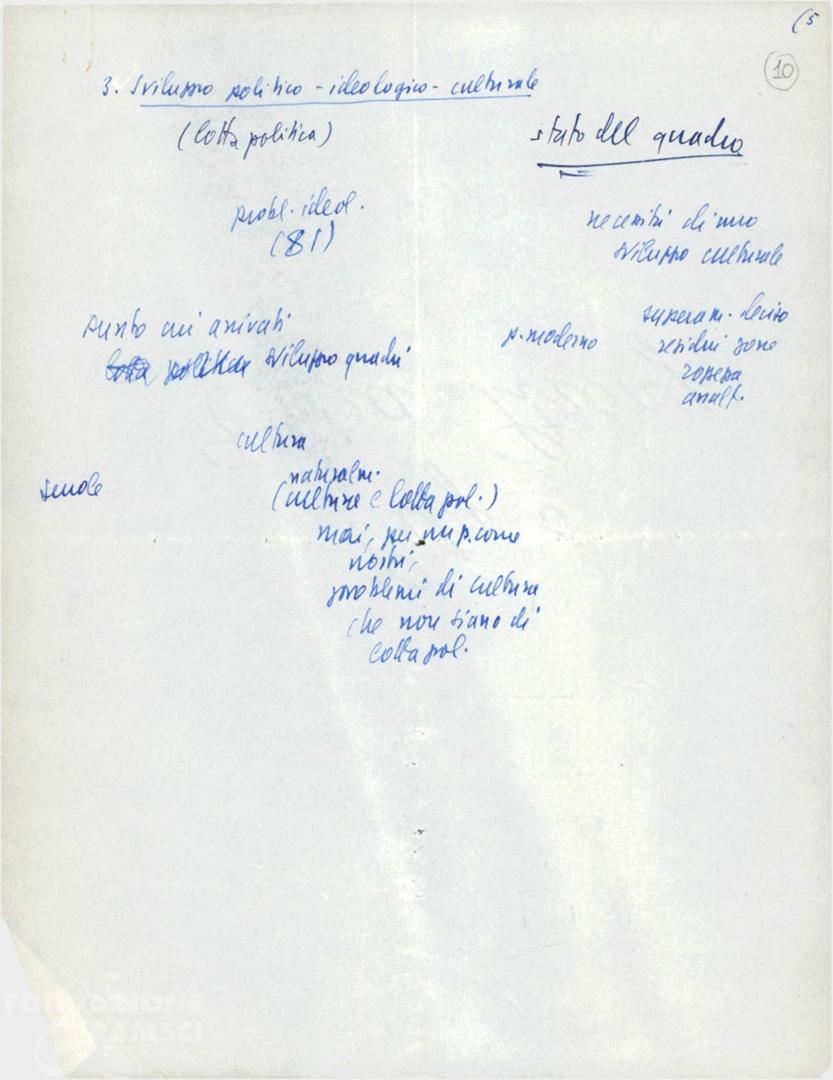 (5
10
3. Sviluppo politico - ideologico - culturale
(lotta politica)
stato del quadro
probl. ideol.
(81)
necessità di uno
sviluppo culturale
punto cui arrivati
sviluppo quadri
p. moderno
superam. deciso
residui zone
analf.
cultura
scuole
naturalm.
(cultura e lotta pol.)
mai, per un p. come
nostri,
problemi di cultura
che non siano di
lotta pol.
FONDAZIONE
GRAMSCI